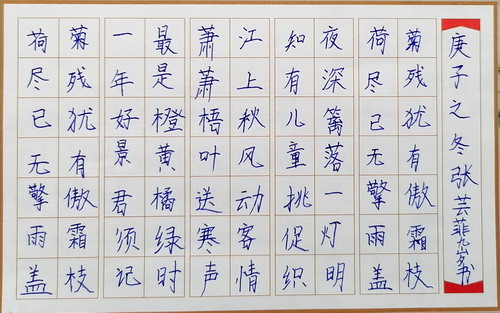 荷尽已无擎雨盖
菊残犹有傲霜枝
一年好景君须记
最是橙黄橘绿时
萧萧梧叶送寒声
江上秋风动客情
知有儿童挑促织
夜深篱落一灯明
荷尽已无擎雨盖
菊残犹有傲霜枝
庚子之冬张芸菲九岁书